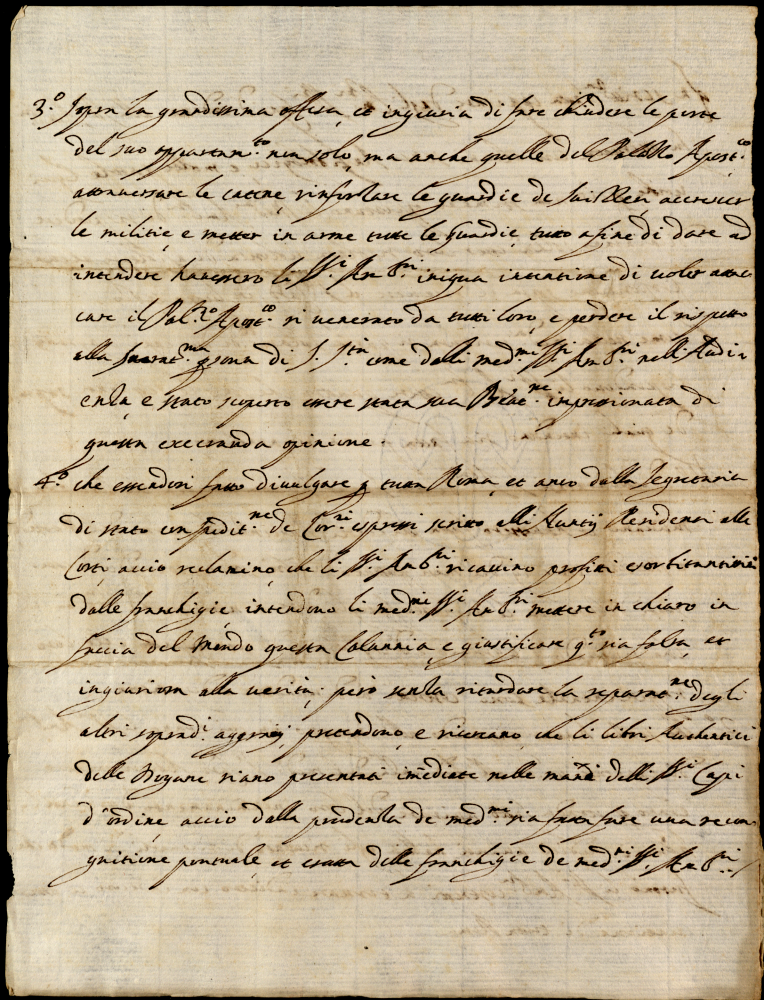 3.º Sopra la grandissima offesa, et ingiuria di fare chiudere le porte
del suo appartam.to non solo, ma anche quelle del Palazzo Apost.co
attraversare le catene, rinforzare le guardie de Suizzeri, accrescer
le militie, e metter in arme tutte le Guardie, tutto a fine di dare ad
intendere havessero li SS.i Amb.ri iniqua intentione di voler attac
care il Pal.zo Apost.co riuenerato da tutti loro, e perdere il rispetto
alla persona di S. S.tà come dalli med.mi SS.ri Amb.ri nell'Audi,
enza e stato scoperto essere stata sua Bea.ne impressionata di
questa execranda opinione.
4.º che essendosi fatto diuulgare p tutta Roma, et anco dalla Segretaria
di stato con spedit.ne de Cor.ri espressi scritto alli Nuntij Residenti alle
Corti, accio reclamino, che li SS.i Amb.ri ricauino profitti esorbitantissi
dalle franchigie, intendono li med.mi SS.i Amb.ri mettere in chiaro in
faccia del Mondo questa Calunnia, e giustificare q.to sia falsa, et
ingiuriosa alla uerità; però senza ritardare la reparat.ne degli
altri sopradi. aggravij, pretendono, e ricercano, che li libri Authentici
delle Dogane siano presentati imediate nelle mani delli SS.i Capi
d'ordine accio dalla prudenza de med.mi sia fatta fare una recon,
gnitione pontuale, et esatta delle franchigie de med.mi SS.i Amb.ri